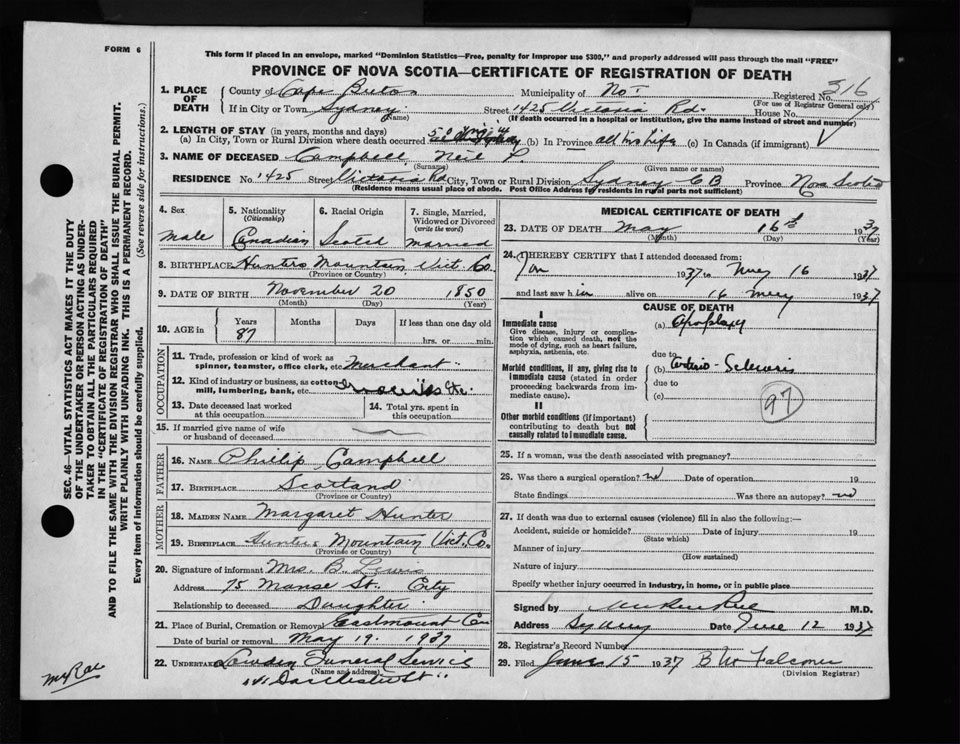 FORM 6
This form if placed in an envelope, marked "Dominion Statistics—Free, penalty for improper use $300," and properly addressed will pass through the mail "FREE"
PROVINCE OF NOVA SCOTIA—CERTIFICATE OF REGISTRATION OF DEATH
1. PLACE OF DEATH
County of Cape Breton Municipality of No 1 Registered No. 316
(For use of Registrar General only)
If in City or Town Sydney Street 1425 Victoria Rd. House No.
(Name) (If death occurred in a hospital or institution, give the name instead of street and number)
2. LENGTH OF STAY (in years, months and days)
(a) In City, Town or Rural Division where death occurred (b) In Province all his life (c) In Canada (if immigrant)
3. NAME OF DECEASED Campbell Neil L
(Surname) (Given name or names)
RESIDENCE No. 1425 Street Victoria Rd City, Town or Rural Division Sydney C B Province Nova Scotia
(Residence means usual place of abode. Post Office Address for residents in rural parts not sufficient)
4. Sex
male
5. Nationality
(Citizenship)
Canadian
6. Racial Origin
Scotch
7. Single, Married, Widowed or Divorced
(write the word)
married
8. BIRTHPLACE Hunters Mountain Vict. Co.
(Province or Country)
9. DATE OF BIRTH November 20 1850
(Month) (Day) (Year)
10. AGE in
Years Months Days If less than one day old
87 hrs. or min.
OCCUPATION
11. Trade, profession or kind of work as
spinner, teamster, office clerk, etc. Merchant
12. Kind of industry or business, as cotton
mill, lumbering, bank, etc.
13. Date deceased last worked
at this occupation
14. Total yrs. spent in
this occupation
15. If married give name of wife
or husband of deceased
FATHER
16. NAME Phillip Campbell
17. BIRTHPLACE Scotland
(Province or Country)
MOTHER
18. MAIDEN NAME Margaret Hunter
19. BIRTHPLACE Hunters Mountain Vict. Co.
(Province or Country)
20. Signature of informant Mrs. B. Lewis
Address 75 Manse St. City
Relationship to deceased Daughter
21. Place of Burial, Cremation or Removal Eastmount Cem
Date of burial or removal May 19. 1937
22. Undertaker Funeral Service
(Name and address)
141 Dorchester St
MEDICAL CERTIFICATE OF DEATH
23. DATE OF DEATH May 16th 1937
(Month) (Day) (Year)
24. I HEREBY CERTIFY that I attended deceased from:
Jan 1937 to May 16 1937
and last saw him alive on 16 May 1937
CAUSE OF DEATH
I
Immediate cause
Give disease, injury or complication which caused death, not the mode of dying, such as heart failure, asphyxia, asthenia, etc.
(a) Apoplexy
due to
Morbid conditions, if any, giving rise to immediate cause (stated in order proceeding backwards from immediate cause).
(b) Arterio-Sclerosis
due to
(c)
97
II
Other morbid conditions (if important) contributing to death but not causally related to immediate cause.
25. If a woman, was the death associated with pregnancy?
26. Was there a surgical operation? no Date of operation 19
State findings Was there an autopsy? no
27. If death was due to external causes (violence) fill in also the following:—
Accident, suicide or homicide? Date of injury 19
(State which)
Manner of injury
(How sustained)
Nature of injury
Specify whether injury occurred in industry, in home, or in public place
Signed by M.D.
Address Sydney Date June 12 1937
28. Registrar's Record Number
29. Filed June 15 1937 B W Falconer
(Division Registrar)
SEC. 46—VITAL STATISTICS ACT MAKES IT THE DUTY
OF THE UNDERTAKER OR PERSON ACTING AS UNDER-
TAKER TO OBTAIN ALL THE PARTICULARS REQUIRED
IN THE "CERTIFICATE OF REGISTRATION OF DEATH"
AND TO FILE THE SAME WITH THE DIVISION REGISTRAR WHO SHALL ISSUE THE BURIAL PERMIT.
WRITE PLAINLY WITH UNFADING INK. THIS IS A PERMANENT RECORD.
Every item of information should be carefully supplied. (See reverse side for instructions.)